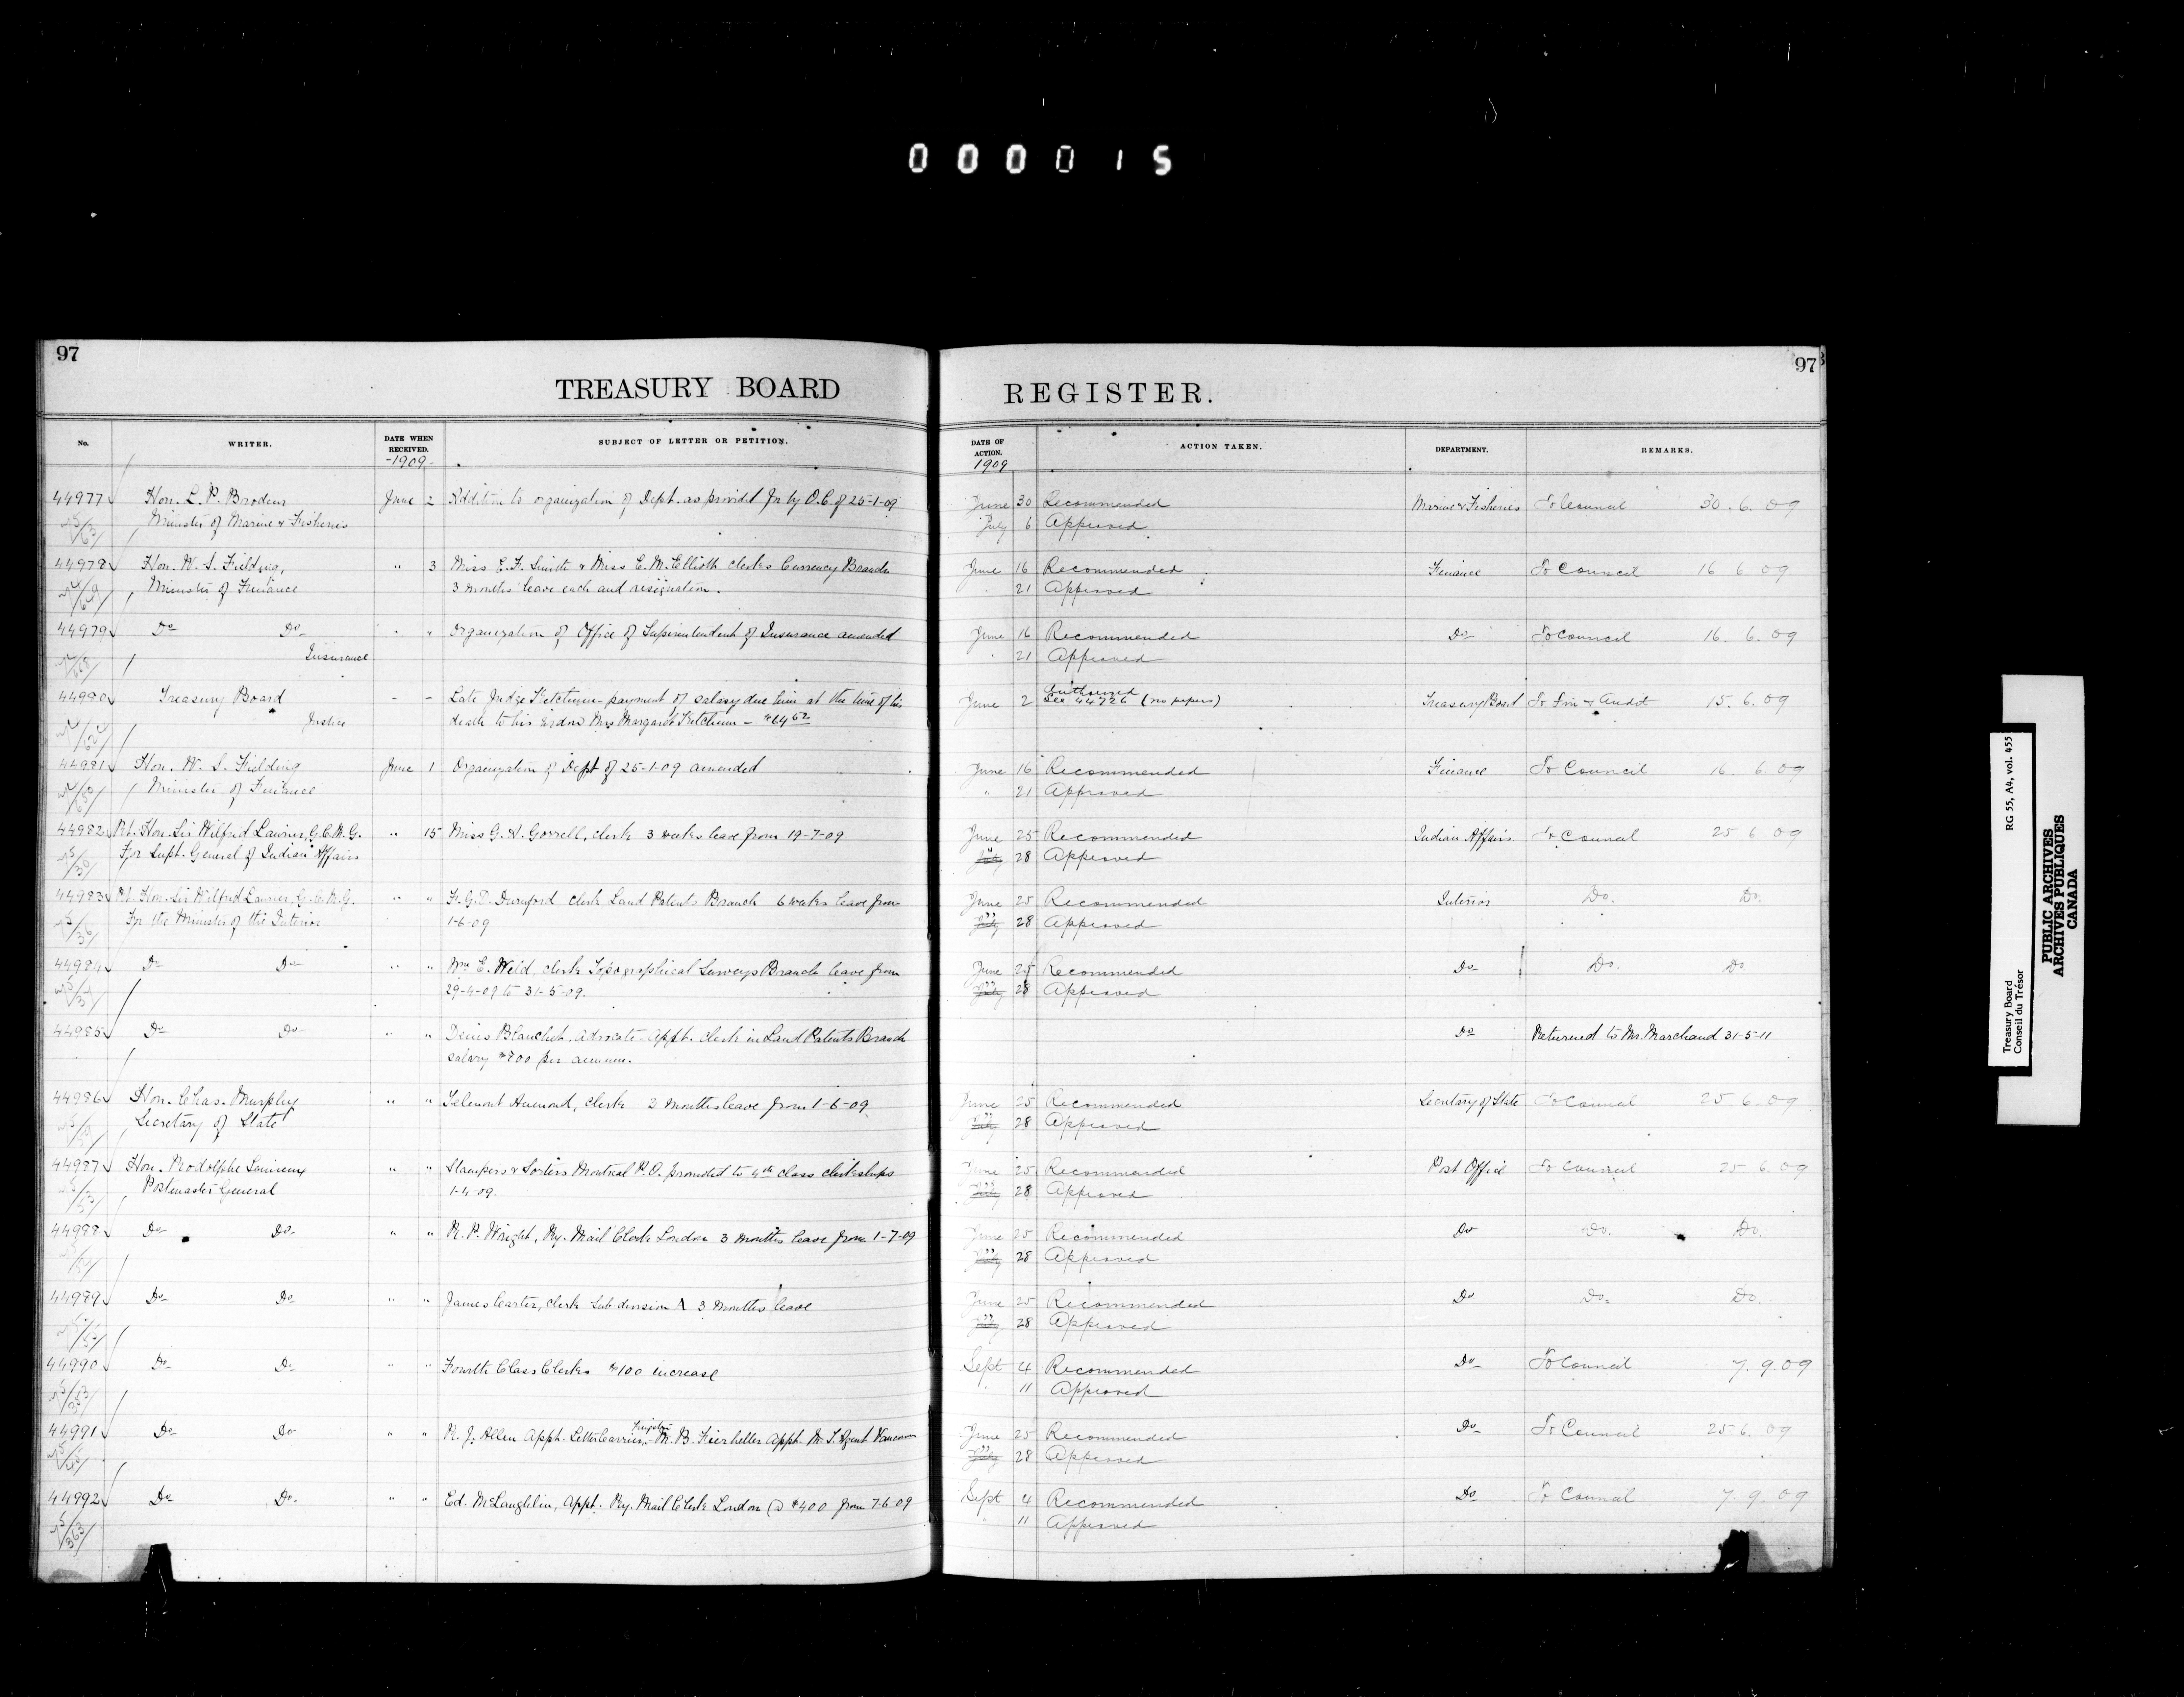 000015
97
97
TREASURY BOARD REGISTER.
No. WRITER. DATE WHEN RECEIVED. SUBJECT OF LETTER OR PETITION. DATE OF ACTION. ACTION TAKEN. DEPARTMENT. REMARKS.
-1909- 1909
44977 Hon. L. P. Brodeur June 2 Addition to organization of Dept. as provided for by O.C. of 25-1-09 June 30 Recommended Marine & Fisheries To Council 30.6.09
Minister of Marine & Fisheries July 6 Approved
44978 Hon. W. S. Fielding, " 3 Miss E. F. Smith & Miss E. M. Elliott clerks Currency Branch June 16 Recommended Finance To Council 16 6 09
Minister of Finance 3 months leave each and resignation. " 21 Approved
44979 Do Do " " Organization of Office of Superintendent of Insurance amended June 16 Recommended Do To Council 16.6.09
Insurance " 21 Approved
44980 Treasury Board - - Late Judge Ketchum payment of salary due him at the time of his June 2 Authorized See 44726 (no papers) Treasury Board To Fin & Audit 15.6.09
Justice death to his widow Mrs Margaret Ketchum -
44981 Hon. W. S. Fielding June 1 Organization of Dept of 25-1-09 amended June 16 Recommended Finance To Council 16 6.09
Minister of Finance " 21 Approved
44982 Rt. Hon. Sir Wilfrid Laurier, G.C.M.G. " 15 Miss G. A. Gorrell, clerk 3 weeks leave from 19-7-09 June 25 Recommended Indian Affairs To Council 25 6 09
For Supt. General of Indian Affairs July " 28 Approved
44983 Rt. Hon. Sir Wilfrid Laurier, G.C.M.G. " " F. G. D. Durnford clerk Land Patents Branch 6 weeks leave from June 25 Recommended Interior Do. Do.
For the Minister of the Interior 1-6-09 July " 28 Approved
44984 Do Do " " Wm E. Weld, clerk Topographical Surveys Branch leave from June 25 Recommended Do Do. Do
29-4-09 to 31-5-09. July " 28 Approved
44985 Do Do " " Denis Blanchet, Advocate Appt. clerk in Land Patents Branch Do Returned to Mr. Marchand 31-5-11
salary $800 per annum.
44986 Hon. Chas. Murphy " " clerk 3 months leave from 1-6-09 June 25 Recommended Secretary of State To Council 25.6.09
Secretary of State July " 28 Approved
44987 Hon. Rodolphe Lemieux " " Stampers & Sorters Montreal P.O. promoted to 4th class clerkships June 25 Recommended Post Office To Council 25 6.09
Postmaster General 1-4-09. July " 28 Approved
44988 Do Do. " " R. P. Wright, Ry. Mail Clerk London 3 months leave from 1-7-09 June 25 Recommended Do Do. Do.
July " 28 Approved
44989 Do Do " " James Carter, clerk Sub division A 3 months leave June 25 Recommended Do Do. Do.
July " 28 Approved
44990 Do Do " " Fourth Class Clerks $100 increase Sept 4 Recommended Do To Council 7.9.09
" 11 Approved
44991 Do Do " " R. J. Allen Appt. Letter Carrier, Kingston - M. B. Fierheller Appt. Agent Vancouver June 25 Recommended Do To Council 25 6.09
July " 28 Approved
44992 Do Do. " " Ed. McLaughlin, Appt. Ry. Mail Clerk London @ $400 from 7-6-09 Sept 4 Recommended Do To Council 7.9.09
" 11 Approved
Treasury Board RG 55, A4, vol. 455
Conseil du Trésor
PUBLIC ARCHIVES
ARCHIVES PUBLIQUES
CANADA